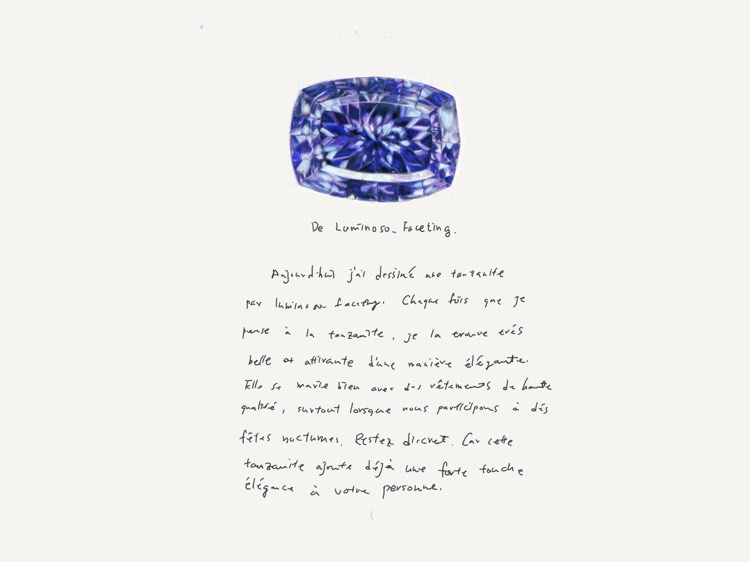 De Luminoso_Faceting.
Aujourd'hui j'ai dessiné une tanzanite
par luminoso faceting. Chaque fois que je
pense à la tanzanite, je la trouve très
belle et attirante d'une manière élégante.
Elle se marie bien avec des vêtements de haute
qualité, surtout lorsque nous participons à des
fêtes nocturnes. Restez discret. Car cette
tanzanite ajoute déjà une forte touche
élégance à votre personne.